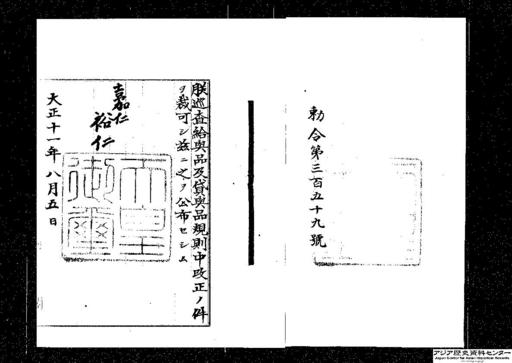 勅令第三百五十九號
朕巡査給與品及貸與品規則中改正ノ件
ヲ裁可シ茲ニ之ヲ公布セシム
嘉仁
裕仁
天皇
御璽
大正十一年八月五日
アジア歴史資料センター
Japan Center for Asian Historical Records